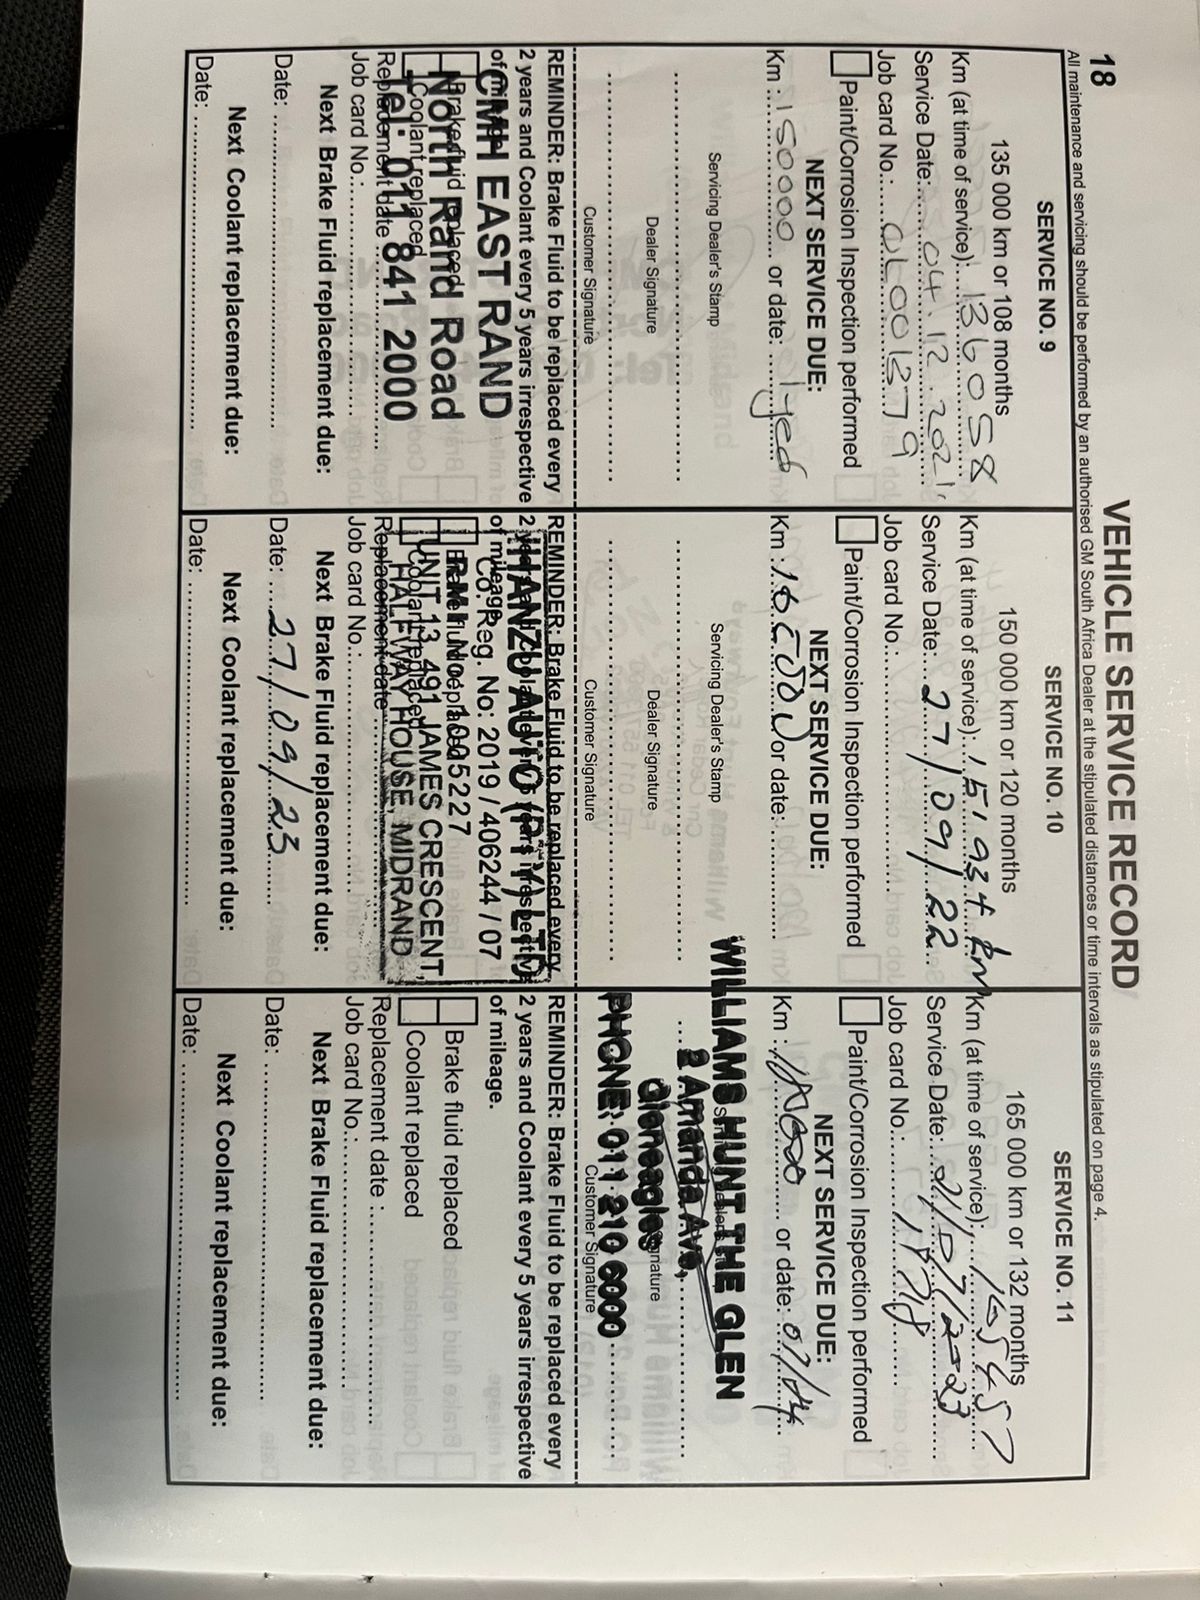 18
VEHICLE SERVICE RECORD
All maintenance and servicing should be performed by an authorised GM South Africa Dealer at the stipulated distances or time intervals as stipulated on page 4.
SERVICE NO. 9
135 000 km or 108 months
Km (at time of service): 136058
Service Date: 04.12.2021.
Job card No.:
Paint/Corrosion Inspection performed
NEXT SERVICE DUE:
Km : 150000 or date:
Servicing Dealer's Stamp
Dealer Signature
Customer Signature
REMINDER: Brake Fluid to be replaced every
2 years and Coolant every 5 years irrespective
of mileage.
CMH EAST RAND
North Rand Road
Tel: 011 841 2000
Brake fluid replaced
Coolant replaced
Replacement date
Job card No.:
Next Brake Fluid replacement due:
Date:
Next Coolant replacement due:
Date:
SERVICE NO. 10
150 000 km or 120 months
Km (at time of service): 151 934 km
Service Date: 27/09/22
Job card No.:
Paint/Corrosion Inspection performed
NEXT SERVICE DUE:
Km : or date:
Servicing Dealer's Stamp
Dealer Signature
Customer Signature
REMINDER: Brake Fluid to be replaced every
2 years and Coolant every 5 years irrespective
of mileage.
HANZU AUTO (PTY) LTD
Co. Reg. No: 2019 / 406244 / 07
RMI No: 1005227
UNIT 13, 491 JAMES CRESCENT,
HALFWAY HOUSE, MIDRAND
Brake fluid replaced
Coolant replaced
Replacement date
Job card No.:
Next Brake Fluid replacement due:
Date: 27/09/23
Next Coolant replacement due:
Date:
SERVICE NO. 11
165 000 km or 132 months
Km (at time of service):
Service Date:
Job card No.:
Paint/Corrosion Inspection performed
NEXT SERVICE DUE:
Km : or date: 07/24
WILLIAMS HUNT THE GLEN
2 Amanda Ave,
Gleneagles
PHONE: 011 210 6000
Signature
Customer Signature
REMINDER: Brake Fluid to be replaced every
2 years and Coolant every 5 years irrespective
of mileage.
Brake fluid replaced
Coolant replaced
Replacement date :
Job card No.:
Next Brake Fluid replacement due:
Date:
Next Coolant replacement due:
Date: